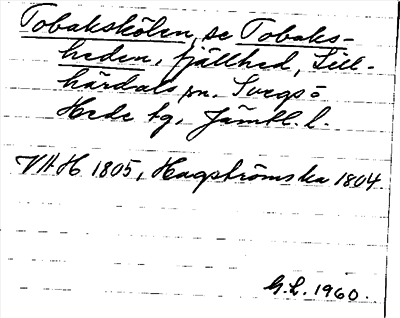 Tobakskölen, se Tobaks-
heden, fjällhed, Lill-
härdals sn. Svegs o
Hede tg, Jämtl. l.
VHAH 1805, Hagströmska 1804.
G.L. 1960.